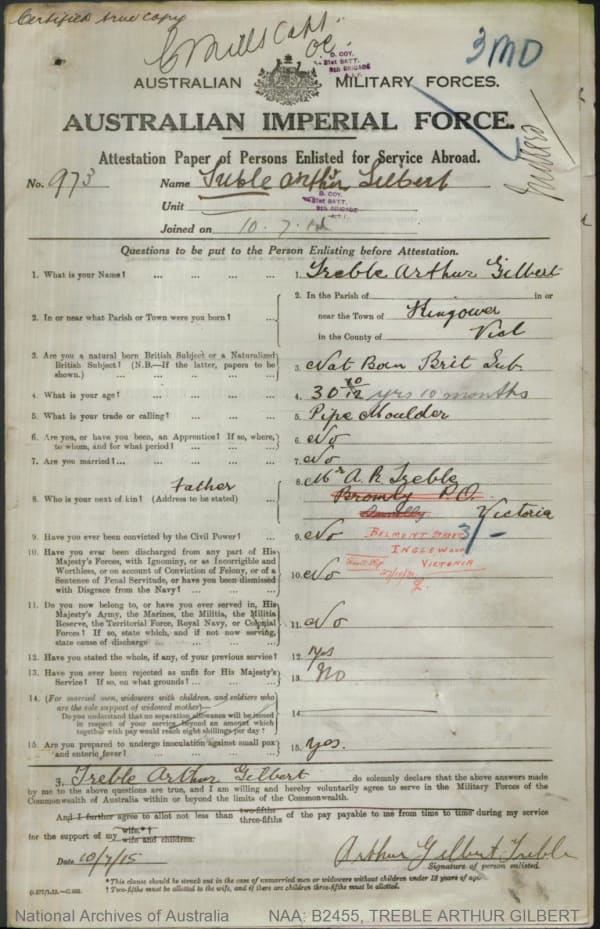 Certified true copy
C Mills Capt.
OC
D. COY.
31st BATT.
8TH BRIGADE
A.I.F.
3 MD
AUSTRALIAN MILITARY FORCES.
AUSTRALIAN IMPERIAL FORCE.
Attestation Paper of Persons Enlisted for Service Abroad.
No. 973 Name Treble Arthur Gilbert
D. COY.
31st BATT.
8TH BRIGADE
A.I.F.
Unit
Joined on 10.7.15
Questions to be put to the Person Enlisting before Attestation.
1. What is your Name? ... ... ... ... 1. Treble Arthur Gilbert
2. In or near what Parish or Town were you born? ... 2. In the Parish of in or
near the Town of Kingower
in the County of Vict
3. Are you a natural born British Subject or a Naturalized 3. Nat Born Brit Sub.
British Subject? (N.B.—If the latter, papers to be
shown.) ... ... ... ... ...
4. What is your age? ... ... ... ... 4. 30 10/12 yrs 10 months
5. What is your trade or calling? ... ... ... 5. Pipe Moulder
6. Are you, or have you been, an Apprentice? If so, where, 6. No
to whom, and for what period? ... ... ...
7. Are you married? ... ... ... ... ... 7. No
Father
8. Who is your next of kin? (Address to be stated) ... 8. Mr A. R. Treble
Bromly P.O.
Dunolly Victoria
BELMONT STREET
INGLEWOOD
VICTORIA
9. Have you ever been convicted by the Civil Power? ... 9. No
3/-
10. Have you ever been discharged from any part of His 10. No
Majesty's Forces, with Ignominy, or as Incorrigible and
Worthless, or on account of Conviction of Felony, or of a
Sentence of Penal Servitude, or have you been dismissed
with Disgrace from the Navy? ... ... ...
11. Do you now belong to, or have you ever served in, His 11. No
Majesty's Army, the Marines, the Militia, the Militia
Reserve, the Territorial Force, Royal Navy, or Colonial
Forces? If so, state which, and if not now serving,
state cause of discharge ... ... ...
12. Have you stated the whole, if any, of your previous service? 12. yes
13. Have you ever been rejected as unfit for His Majesty's 13. No
Service? If so, on what grounds? ... ... ...
14. (For married men, widowers with children, and soldiers who 14.
are the sole support of widowed mother)—
Do you understand that no separation allowance will be issued
in respect of your service beyond an amount which
together with pay would reach eight shillings per day?
15. Are you prepared to undergo inoculation against small pox 15. yes.
and enteric fever? ... ... ... ...
I, Treble Arthur Gilbert do solemnly declare that the above answers made
by me to the above questions are true, and I am willing and hereby voluntarily agree to serve in the Military Forces of the
Commonwealth of Australia within or beyond the limits of the Commonwealth.
And I further agree to allot not less than two-fifths three-fifths of the pay payable to me from time to time during my service
for the support of my wife.*† wife and children.
Date 10/7/15 Arthur Gilbert Treble
Signature of person enlisted.
*This clause should be struck out in the case of unmarried men or widowers without children under 18 years of age.
† Two-fifths must be allotted to the wife, and if there are children three-fifths must be allotted.
National Archives of Australia NAA: B2455, TREBLE ARTHUR GILBERT